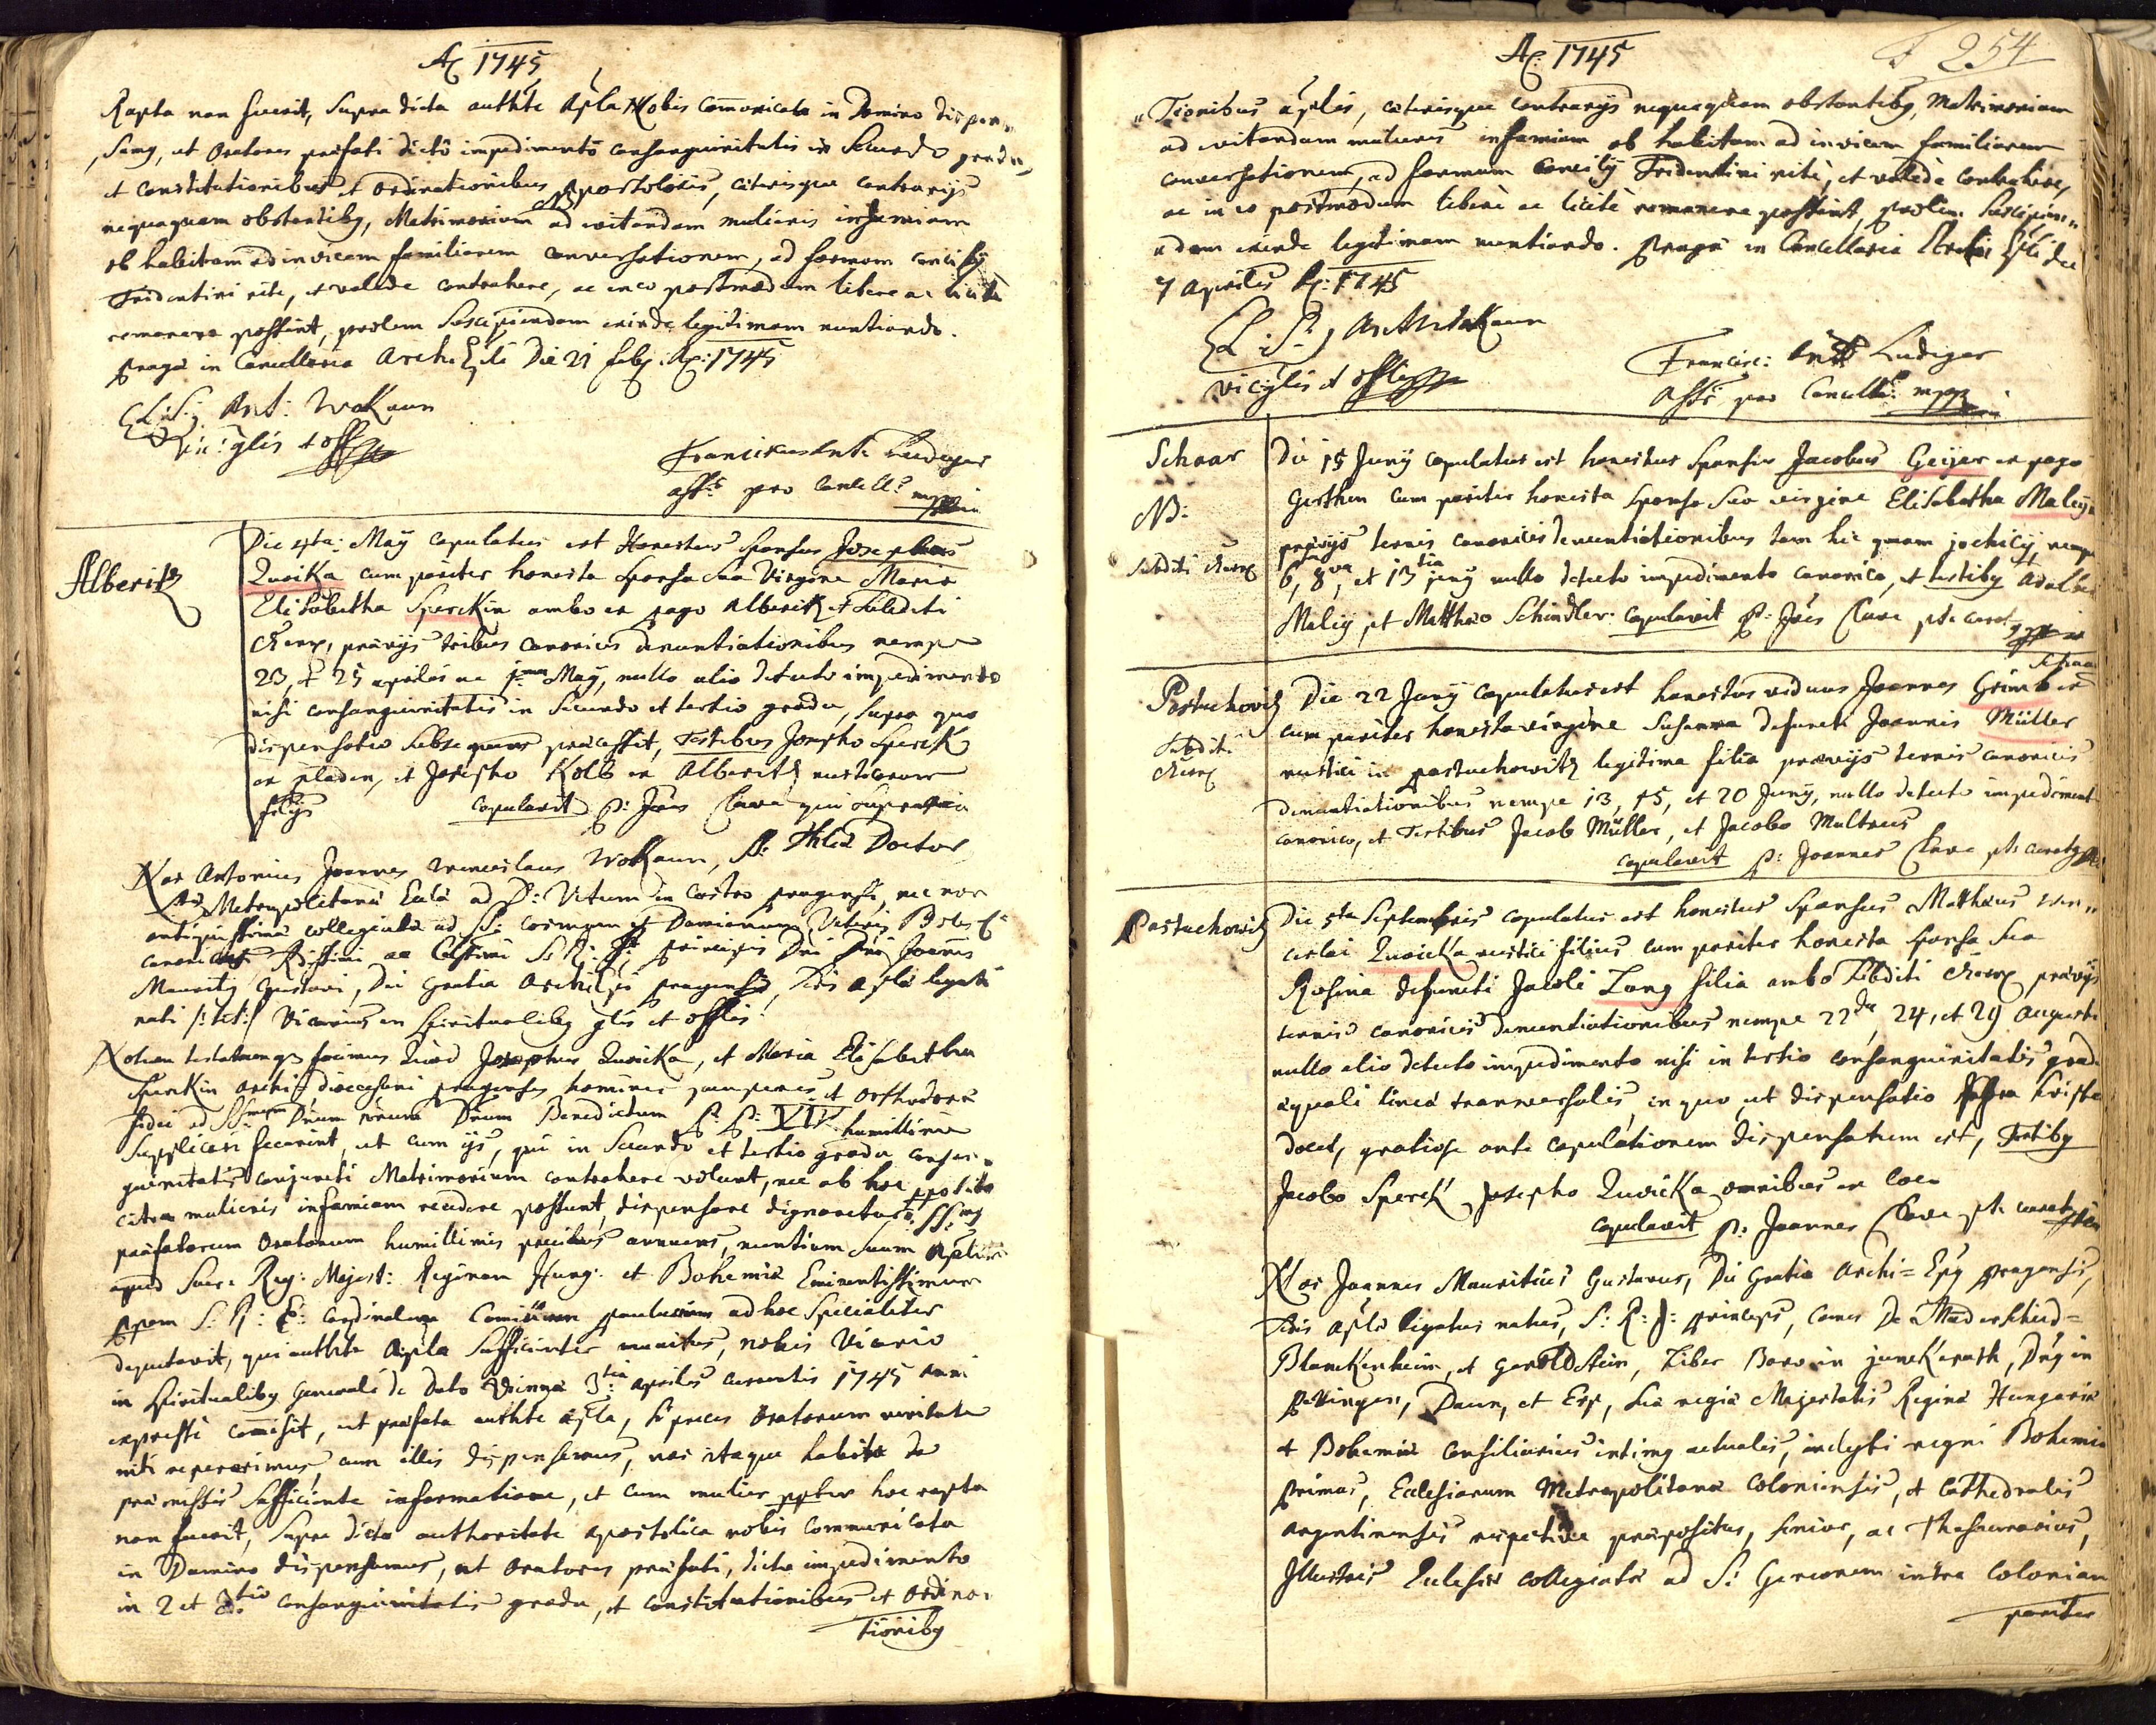 A: 1745
Rapta non fuerit, supra dicta authte Apla Nobis Comunicata in Domino dispen„
samg, ut Oratores præfati dictô impedimentô consanguinitatis in Secundo gradu,
et constitutionibus et Ordinationibus Apostolicis, cæterisque contrarijs
nequaquam obstantibg, Matrimonium ad evitandam mulieris infamiam
ob habitam ad invicem familiarem conversationem, ad formam concilij
Tridentini rite, et valide contrahere, ac in eo postmodum libere ac licite
remanere possint, prolem suscipiendam exinde legitimam nuntiando.
Pragæ in Cancellaria Archi Eplí Die 21 feb: A: 1745
(L:S:) Ant: Wokaun
Vic: glis et offlis
Franciscus Ant: Rudiger
asse: pro Cancell: mpp
Alberitz
Die 4ta: Maÿ copulatus est Honestus Sponsus Josephus
Zuoika cum pariter honesta Sponsa sua Virgine Maria
Elisabetha Sperckin ambo ex pago Alberitz et subditi
præviis tribus canonicis denuntiationibus nempe
23, et 25 aprilis ac 1ma Maÿ, nullo alio detecto impedimento
nisi consanguinitatis in secundo et tertio gradu, super quo
dispensatio subsequens præcessit, Testibus Josepho Sperck
ex pladen, et Josepho Kolb ex Alberitz rusticorum
filijs copulavit P: Jões Clava qui supra
Nos Antonius Joannes Venceslaus Wokaun, SS: Thliæ Doctor
Metropolitanæ Eccliæ ad S: Vitum in castro pragensi, nec non
antiquissimæ collegiatæ ad SS: Cosmam et Damianum Veteris Bolesl:
canonicus, Rdissimi ac Celsissimi S: R: I: principis Dni Dni Joannis
Mauritij Gustavi, Dei gratia Archi Epi pragensis, Sedis Aplæ legati
nati /:tit:/ Vicarius in spiritualibg glis et offlis
Notum testatumqe facimus Quod Josephus Zuoicka, et Maria Elisabetha
Sperckin archi-diœcesani pragenses homines pauperes et orthodoxæ
fidei ad SSmum Dnum nrum Dnum Benedictum P: P: XIV humillime
supplicari fecerint, ut cum ijs, qui in secundo et tertio gradu consan„
guinitatis conjuncti Matrimonium contrahere volunt, nec ab hoc pposito
citra mulieris infamiam recedere possunt, dispensare dignaretur, SSmg
præfatorum Oratorum humillimis precibus annuens, nuntium suum Aplicum
apud Sacr: Reg: Majest: Reginam Hung: et Bohemiæ Eminentissimum
S: R: E: Cardinalem Comitem paulucium ad hoc specialiter
deputavit, qui authte Apla sufficienter munitus, nobis Vicario
in spiritualibg Generali de dato Viennæ 3tia aprilis currentis 1745 anni
expresse comisit, ut præfata authte apla, si preces Oratorum veritate
niti repererimus, cum illis dispensemus, nos itaque habita de
præmissis sufficiente informatione, et cum mulier ppter hoc rapta
non fuerit, supra dicta authoritate apostolica nobis communicata
in Domino dispensamus, ut Oratores præfati, dicto impedimento
in 2 et 3tio consanguinitatis gradu, et constitutionibus et Ordina„
tionibg
A: 1745
254
„Tionibus aplis, cæterisque contrarijs nequaquam obstantibg, Matrimonium
ad evitandam mulieris infamiam ob habitam ad invicem familiarem
conversationem, ad formam Concilij Tridentini ritè, et validè contrahere,
ac in eo postmodum liberè ac licitè remanere possint, prolem suscipien„
dam exinde legitimam nuntiando. Pragæ in Cancellaria Archi Epli die
7 Aprilis A: 1745
(L: S:) Ant Wokaun
Vic glis et offlis
Francisc: Ant Rudiger
Asse: pro Cancell: mpp
Schaar
NB:
Subditi
Die 15 Junij copulatus est honestus Sponsus Jacobus Geijer ex pago
Gerthen cum pariter honesta Sponsa sua virgine Elisabetha Malij
prævijs ternis canonicis denuntiationibus tam hic quam jechicij, nempe
6, 8va, et 13tia junij nullo detecto impedimento canonico, et testibg Adalber
Malij, et Matthæo Schindler. copulavit P: Jões Clava pt: curatg
Postuchovitz
Subditi
Die 22 Junij copulatus est honestus viduus Joannes Grimb ex Schaar
cum pariter honesta virgine Susanna defuncti Joannis Müller
rustici in postuchowitz legitima filia prævijs ternis canonicis
denuntiationibus nempe 13, 15, et 20 Junij, nullo detecto impedimento
canonico, et Testibus Jacob Müller, et Jacobo Multrus
copulavit P: Joannes Clava pt: curatg
Postuchowitz
Die 5ta Septembris copulatus est honestus Sponsus Mathæus Wen„
ceslai Zuoicka rustici filius cum pariter honesta Sponsa sua
Rosina defuncti Jacobi Lang filia ambo Subditi prævijs
ternis canonicis denuntiationibus nempe 22da, 24, et 29 Augusti
nullo alio detecto impedimento nisi in tertio consanguinitatis gradu
æquali lineæ transversalis, in quo, ut dispensatio infra scripta
docet, gratiose ante copulationem dispensatum est, Testibg
Jacobo Sperck Josepho Zuoicka omnibus ex loco
copulavit P: Joannes Clava pt: curatg
Nos Joannes Mauritius Gustavus, Dei Gratia Archi=Epg pragensis,
Sedis aplæ legatus natus, S: R: I: princeps, Comes De Manderscheid=
Blanckenheim, et Geroldstein, Liber Baro in junckerath, Dng in
Bettingen, Daun, et Erp, Suæ regiæ Majestatis Reginæ Hungariæ
et Bohemiæ consiliarius intimg actualis, inclyti regni Bohemiæ
Primas, Ecclesiarum Metropolitanæ Coloniensis, et Cathedralis
argentinensis respective præpositus, senior, ac Thesaurarius,
Illustris Ecclesiæ collegiatæ ad S: Gereonem intra Coloniam
pariter